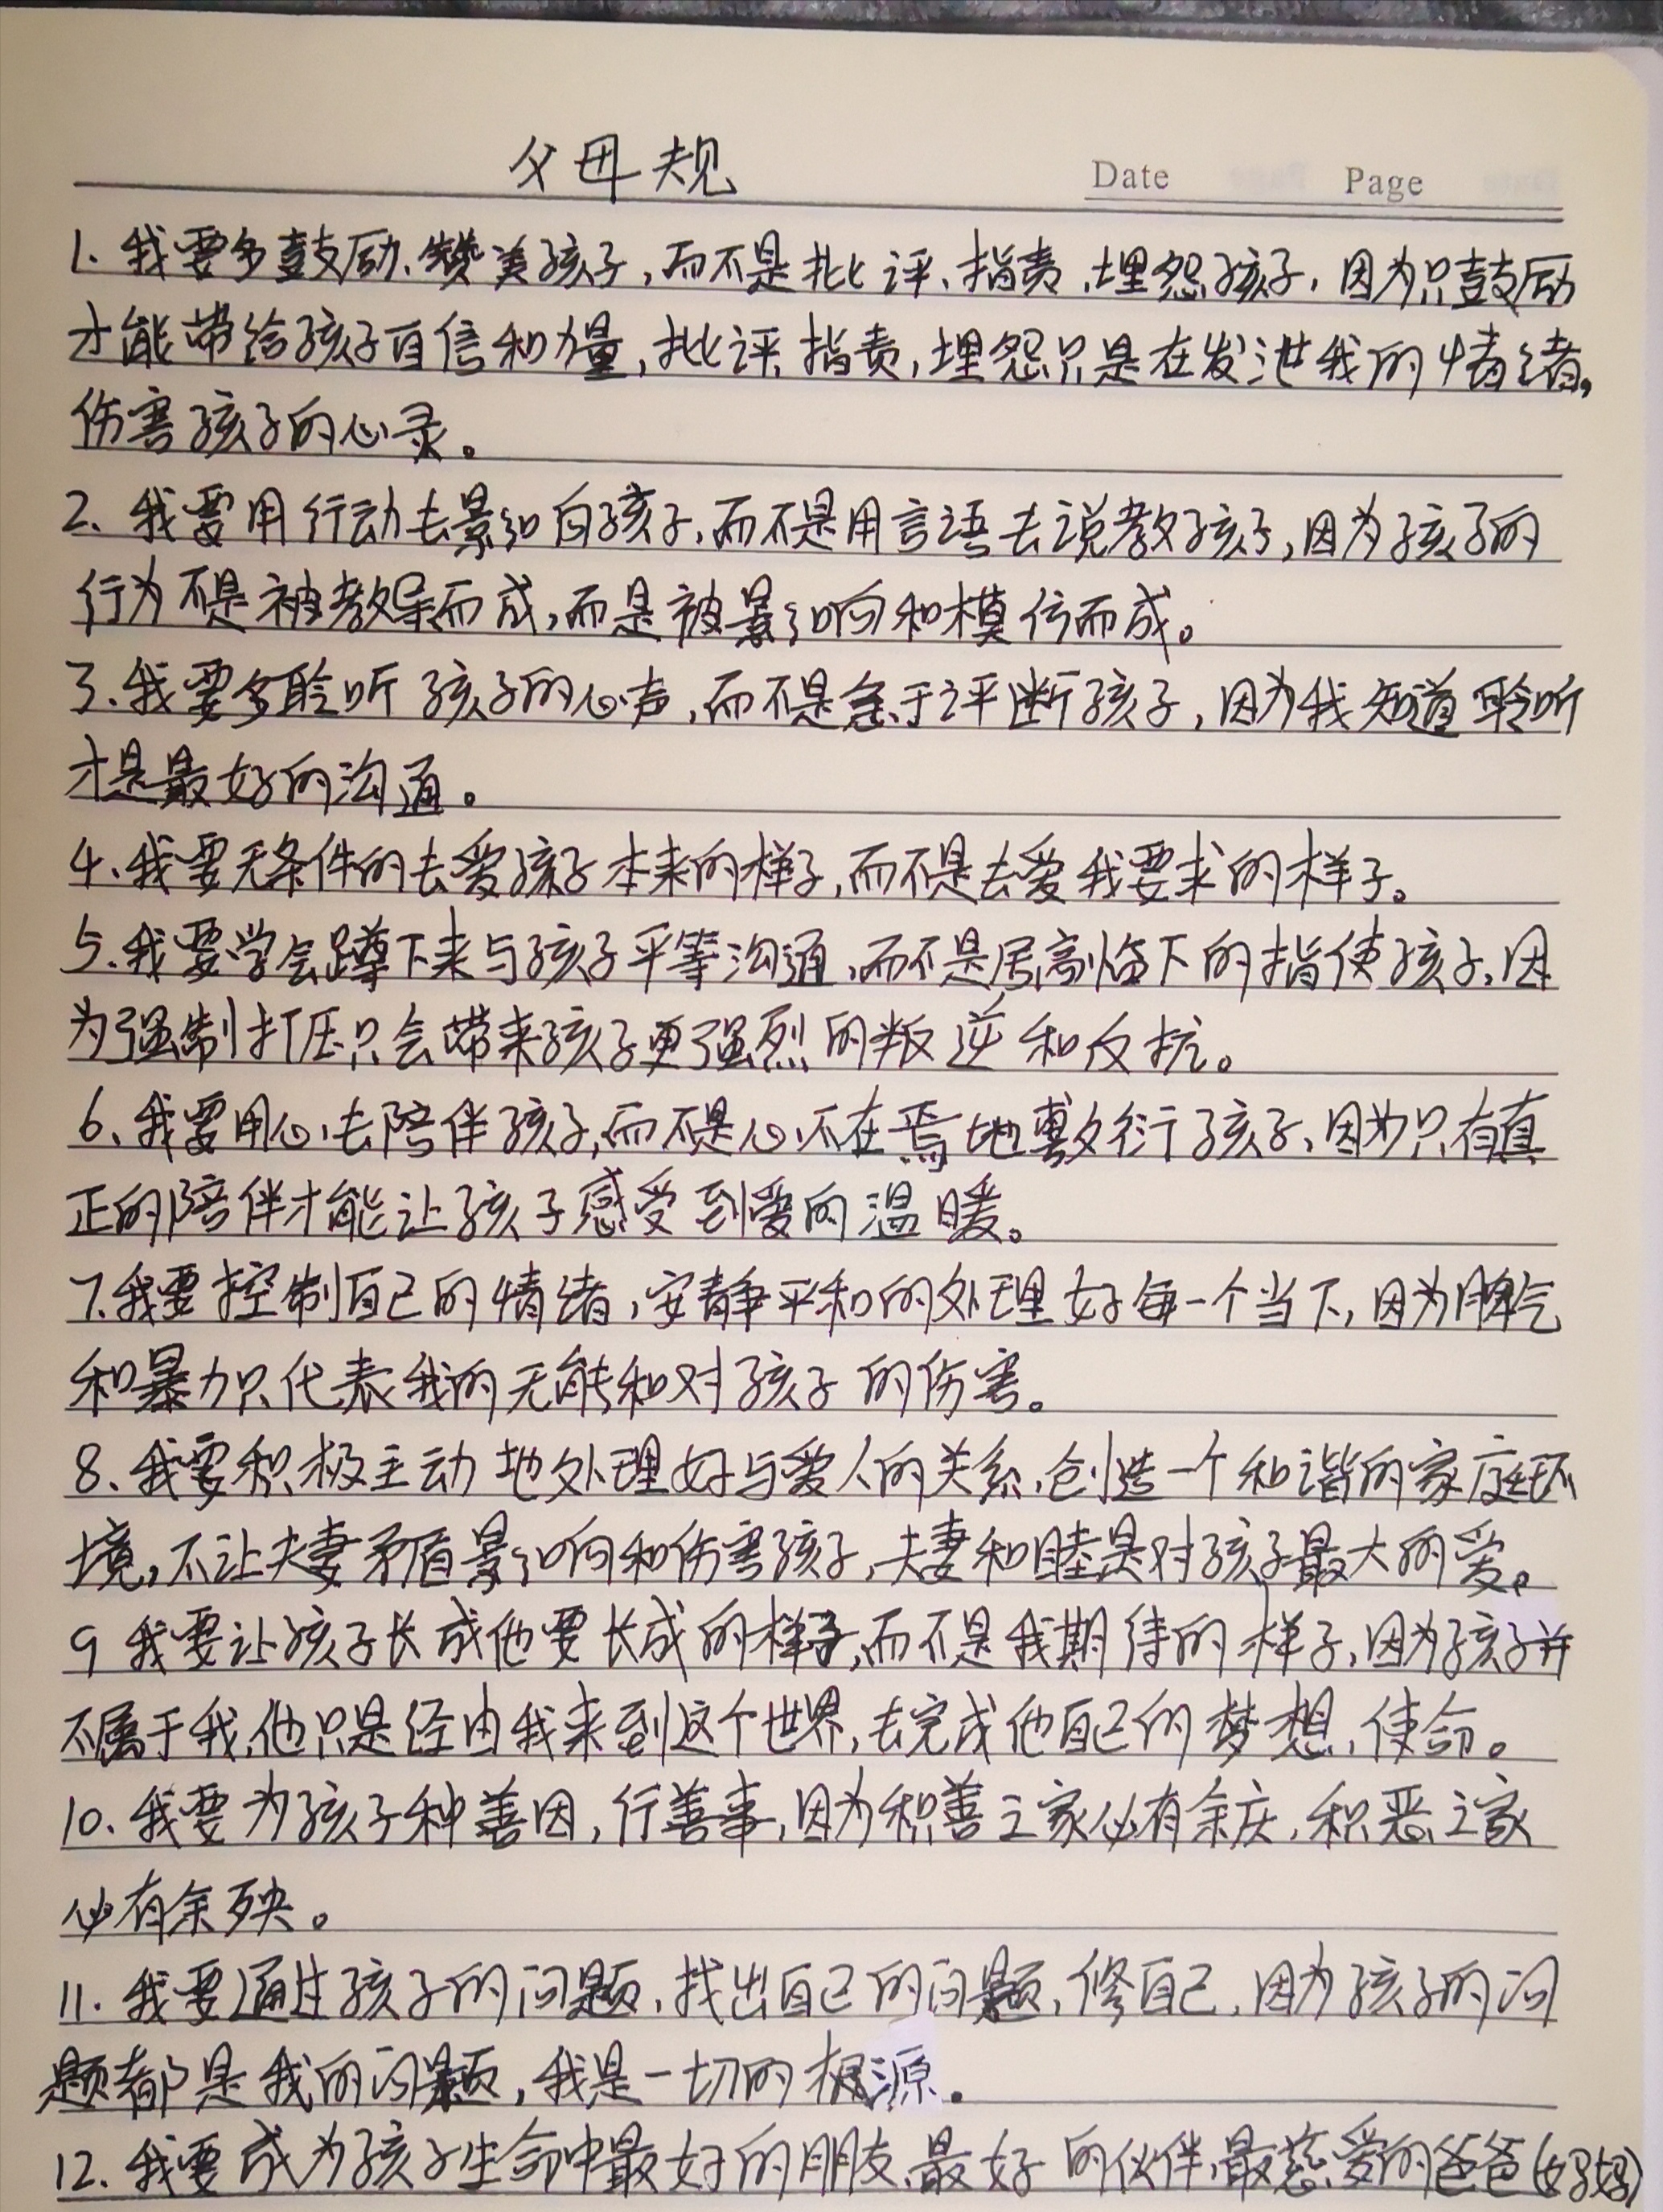 父母规
Date Page
1.我要多鼓励、赞美孩子,而不是批评、指责、埋怨孩子,因为只鼓励
才能带给孩子自信和力量,批评、指责,埋怨只是在发泄我的情绪,
伤害孩子的心灵。
2、我要用行动去影响孩子,而不是用言语去说教孩子,因为孩子的
行为不是被教导而成,而是被影响和模仿而成。
3、我要多聆听孩子的心声,而不是急于评断孩子,因为我知道聆听
才是最好的沟通。
4、我要无条件的去爱孩子本来的样子,而不是去爱我要求的样子。
5、我要学会蹲下来与孩子平等沟通,而不是居高临下的指使孩子,因
为强制打压只会带来孩子更强烈的叛逆和反抗。
6、我要用心去陪伴孩子,而不是心不在焉地敷衍孩子,因为只有真
正的陪伴才能让孩子感受到爱的温暖。
7.我要控制自己的情绪,安静平和的处理好每一个当下,因为脾气
和暴力只代表我的无能和对孩子的伤害。
8、我要积极主动地处理好与爱人的关系,创造一个和谐的家庭环
境,不让夫妻矛盾影响和伤害孩子,夫妻和睦是对孩子最大的爱。
9我要让孩子长成他要长成的样子,而不是我期待的样子,因为孩子并
不属于我,他只是经由我来到这个世界,去完成他自己的梦想,使命。
10.我要为孩子种善因,行善事,因为积善之家必有余庆,积恶之家
必有余殃。
11.我要通过孩子的问题,找出自己的问题,修自己,因为孩子的问
题都是我的问题,我是一切的根源。
12.我要成为孩子生命中最好的朋友、最好的伙伴,最慈爱的爸爸(妈妈)